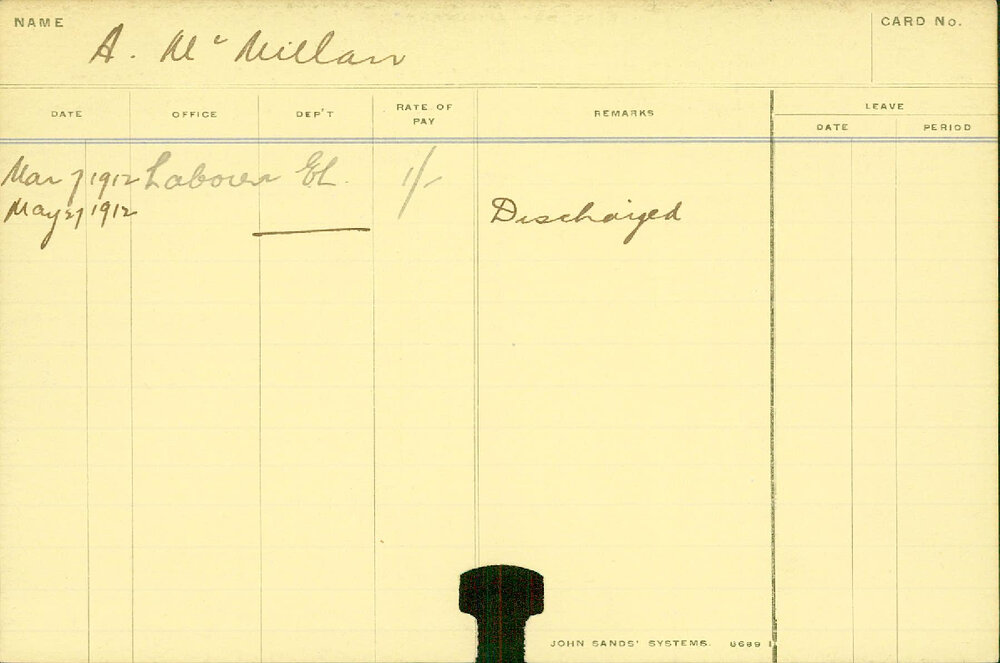 NAME
A. McMillan
CARD No.
DATE OFFICE DEP'T RATE OF PAY REMARKS LEAVE
DATE PERIOD
Mar 7 1912 Laborer EL. 1/-
May 27 1912 Discharged
JOHN SANDS' SYSTEMS. 6689